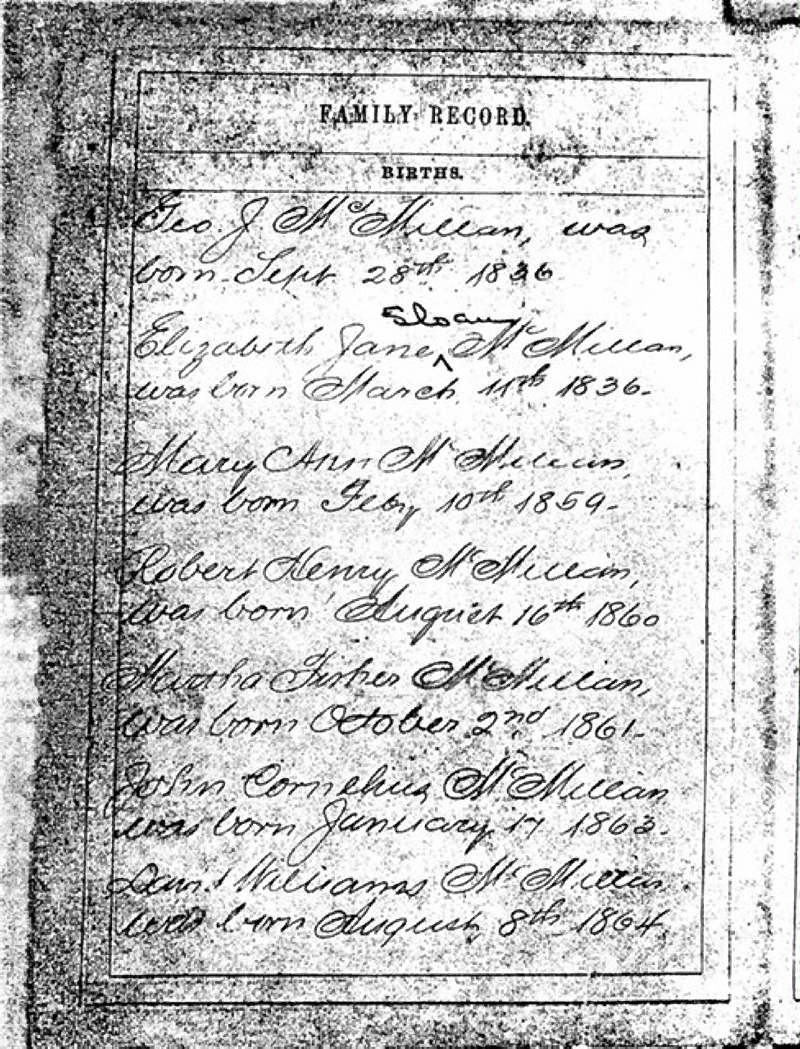 FAMILY RECORD.
BIRTHS.
Geo. J McMillan, was
born Sept 28th 1836
Sloan
Elizabeth Jane ^ McMillan,
was born March 11th 1836-
Mary Ann McMillan,
was born Feby 10th 1859-
Robert Henry McMillan,
was born August 16th 1860
Martha Fisher McMillan,
was born October 2nd 1861-
John Cornelius McMillan
was born January 17 1863-
David Williams McMillan
was born August 8th 1864.